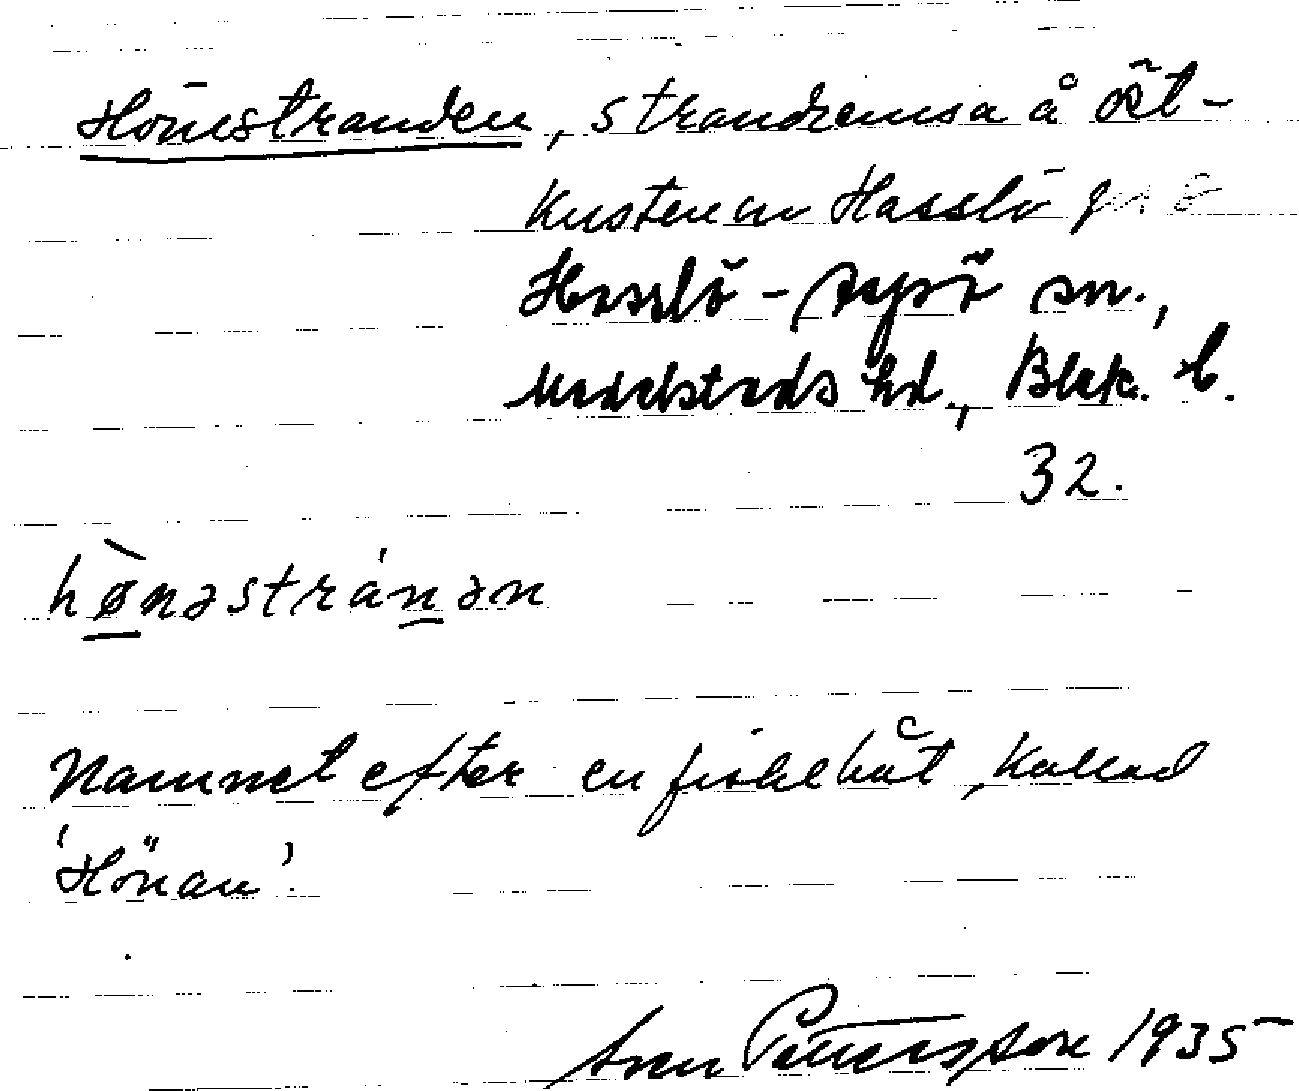 Hönestranden, strandremsa å öst-
kusten av Hasslö
Hasslö - Aspö sn.,
Medelstads hd., Blek. l.
32.
hø̀nəstránən
Namnet efter en fiskebåt, kallad
'Hönan'.
Sven Pettersson 1935